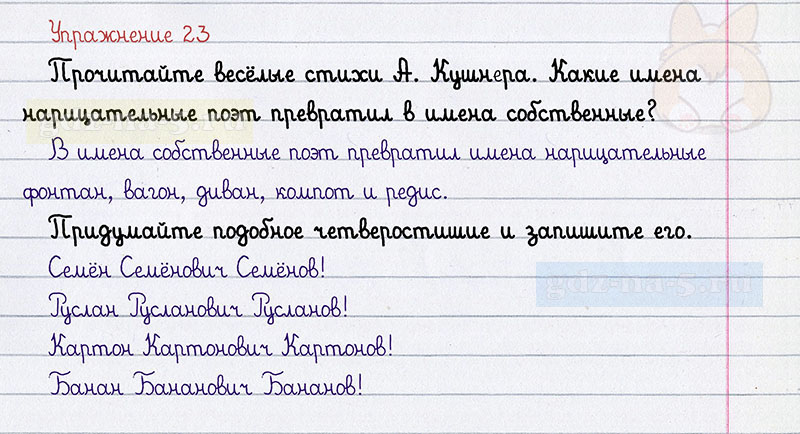 Упражнение 23
Прочитайте весёлые стихи А. Кушнера. Какие имена
нарицательные поэт превратил в имена собственные?
В имена собственные поэт превратил имена нарицательные
фонтан, вагон, диван, компот и редис.
Придумайте подобное четверостишие и запишите его.
Семён Семёнович Семёнов!
gdz-na-5.ru
Руслан Русланович Русланов!
Картон Картонович Картонов!
Банан Бананович Бананов!